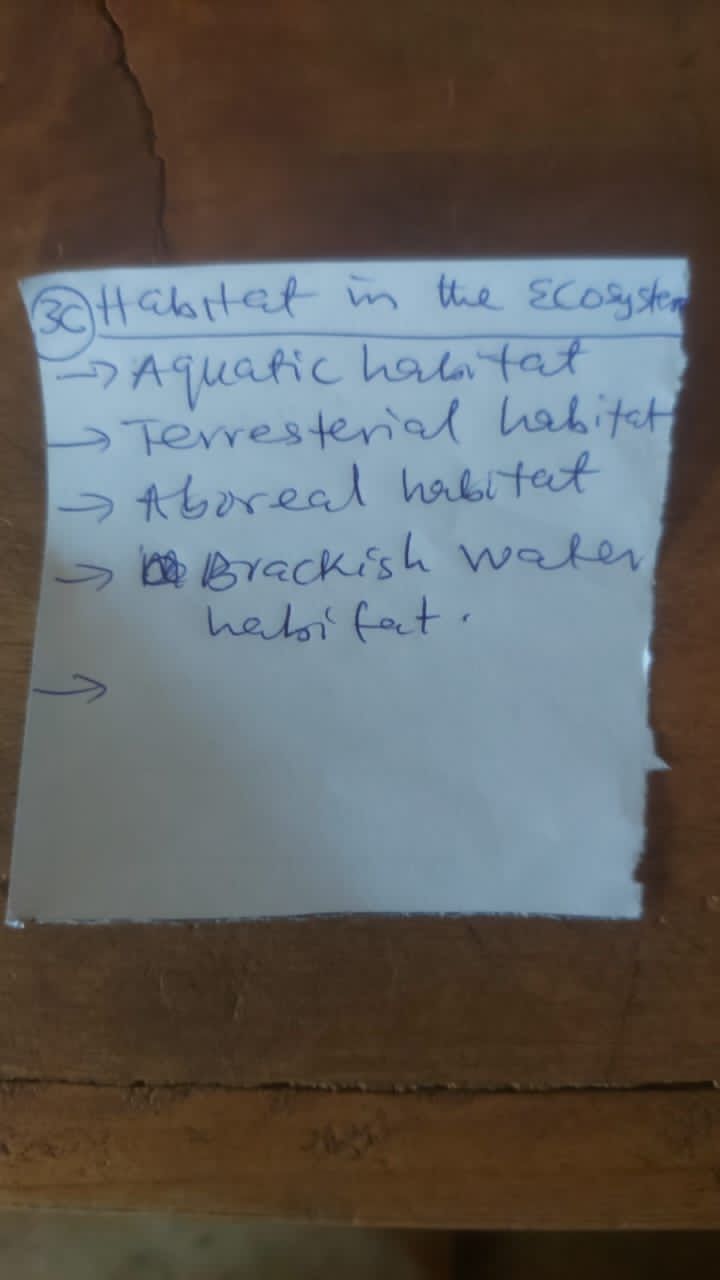 3C Habitat in the Ecosystem
→ Aquatic habitat
→ Terresterial habitat
→ Aboreal habitat
→ Brackish water
habitat.
→